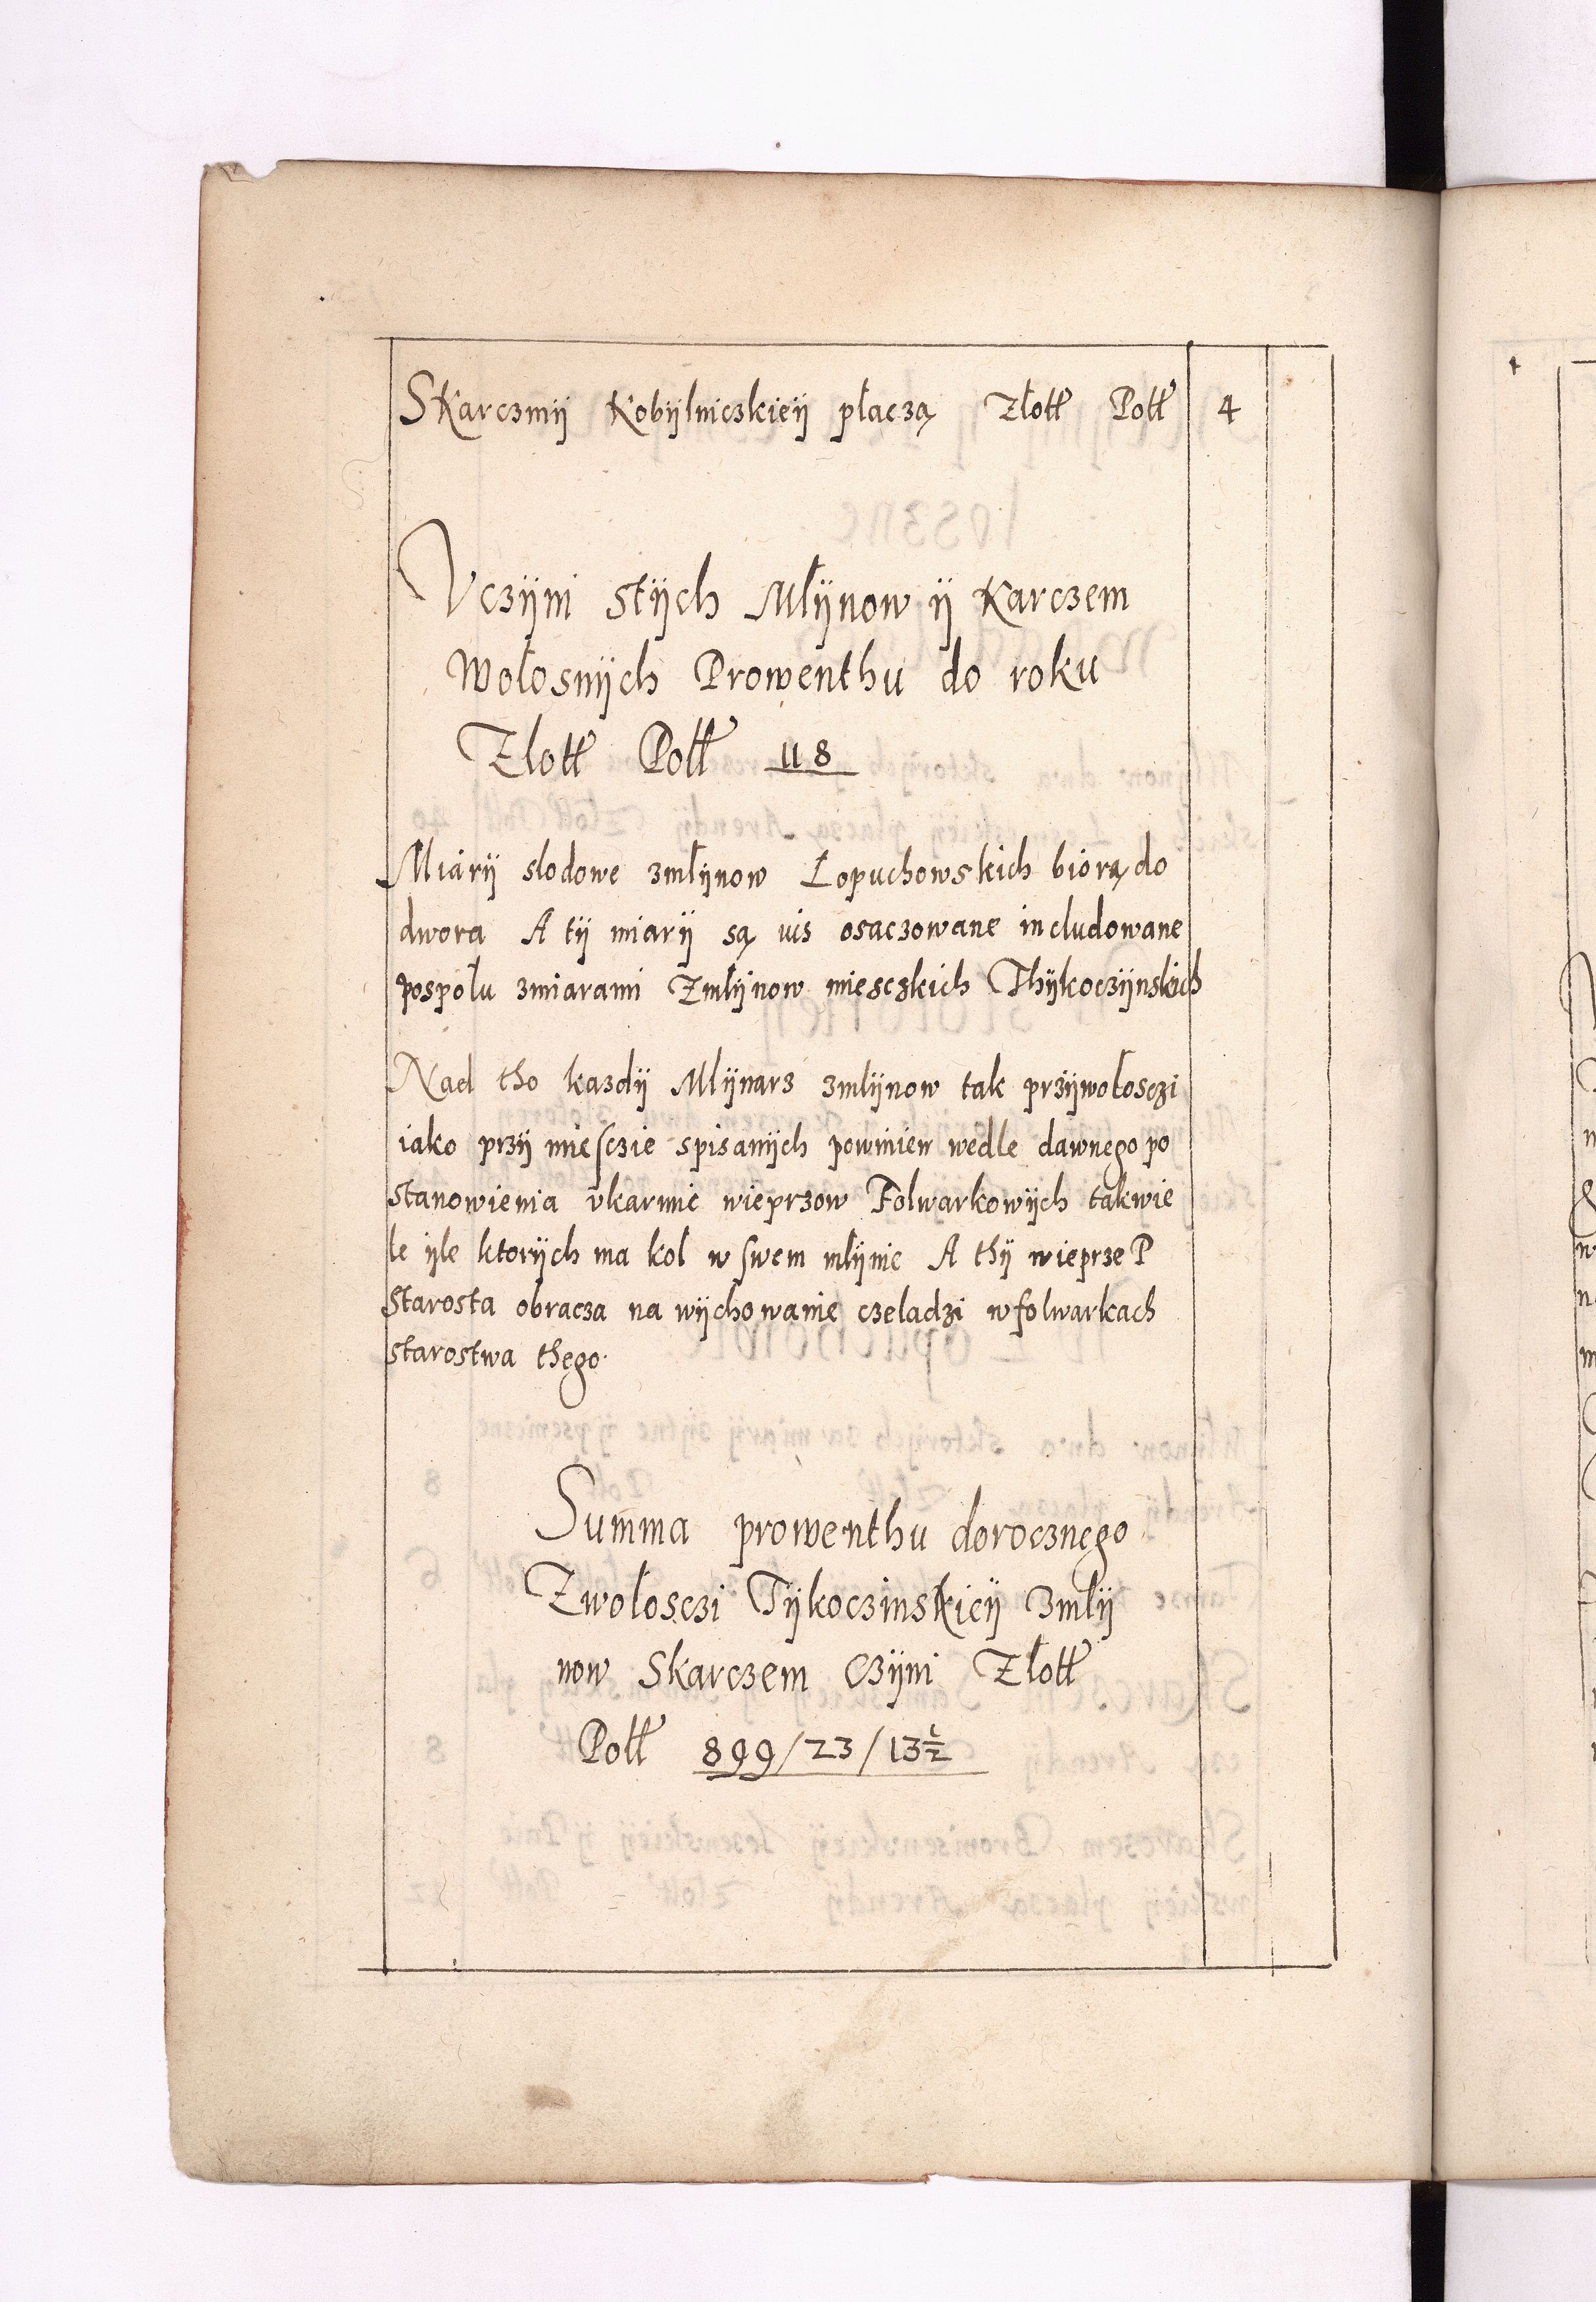 Skarczmÿ Kobÿlniczkieÿ płaczą Złott Poll 4
Vczÿni stÿch Młÿnow ÿ Karczem
Wołosnÿch Prowenthu do roku
Złott Poll 118
Miarÿ slodowe zmłÿnow Łopuchowskich biorą do
dwora A tÿ miarÿ są uis osaczowane includowane
pospołu zmiarami Zmłÿnow miesczkich Thÿkoczÿnskich
Nad tho kazdÿ Mlÿnarz zmlÿnow tak przÿwołosczi
iako przÿ miesczie spisanÿch powinien wedle dawnego po
stanowienia vkarmic wieprzow Folwarkowÿch takwie
le ÿle ktorÿch ma kol w swem mlÿnie A thÿ wieprze P
Starosta obracza na wÿchowanie czeladzi wfolwarkach
starostwa thego.
Summa prowenthu dorocznego
Zwołosczi Tÿkoczinskieÿ Zmlÿ
now Skarczem Czÿni Złott
Poll 899/23/13½